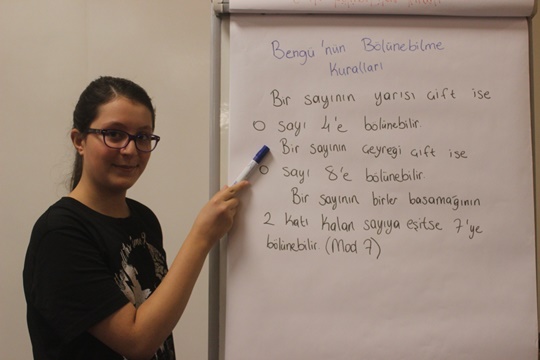 Bengü'nün Bölünebilme
Kuralları
Bir sayının yarısı çift ise
o sayı 4'e bölünebilir.
Bir sayının çeyreği çift ise
o sayı 8'e bölünebilir.
Bir sayının birler basamağının
2 katı kalan sayıya eşitse 7'ye
bölünebilir. (Mod 7)